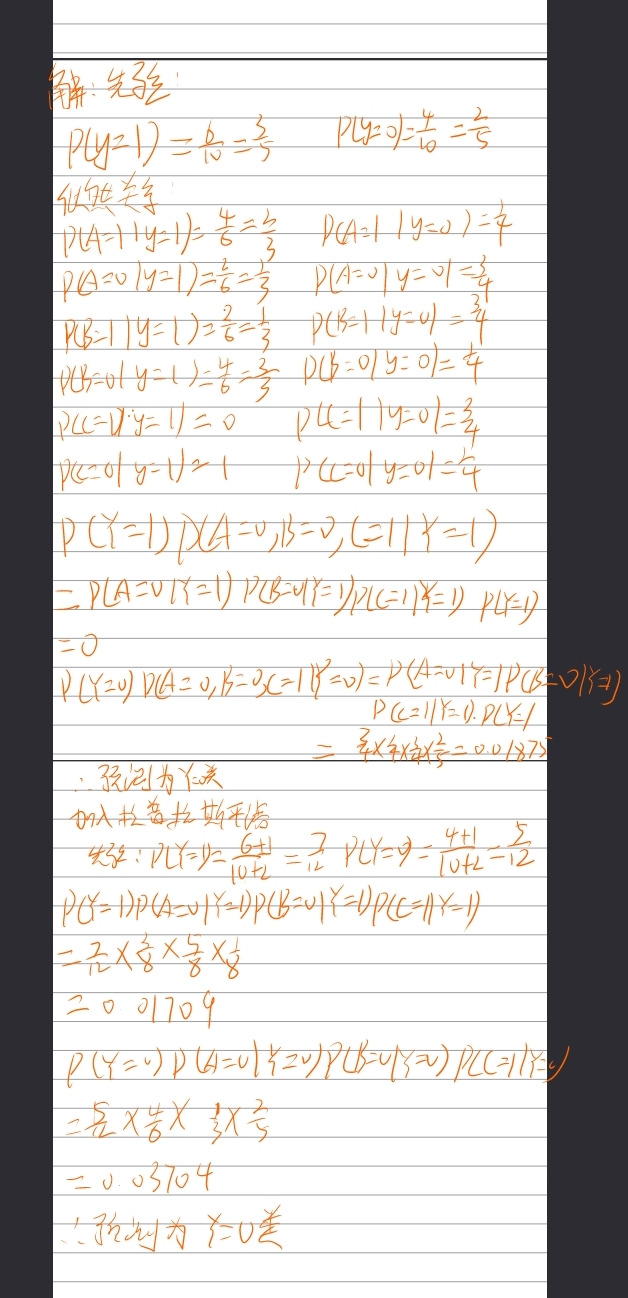 解：先验：
P(y=1)=6/10=3/5 P(y=0)=4/10=2/5
似然关系
P(A=1|y=1)=4/6=2/3 P(A=1|y=0)=1/4
P(A=0|y=1)=2/6=1/3 P(A=0|y=0)=3/4
P(B=1|y=1)=2/6=1/3 P(B=1|y=0)=3/4
P(B=0|y=1)=4/6=2/3 P(B=0|y=0)=1/4
P(C=1|y=1)=0 P(C=1|y=0)=
P(C=0|y=1)=1 P(C=0|y=0)=
P(Y=1)P(A=0,B=0,C=1|Y=1)
=P(A=0|Y=1)P(B=0|Y=1)P(C=1|Y=1) P(Y=1)
=0
P(Y=0)P(A=0,B=0,C=1|Y=0)=P(A=0|Y=1)P(B=0|Y=1)
P(C=1|Y=1).P(Y=1
= =0.01875
∴预测为 类
加入拉普拉斯平滑
先验：P(Y=1)=6+1/10+2=7/12 P(Y=0)=4+1/10+2=5/12
P(Y=1)P(A=0|Y=1)P(B=0|Y=1)P(C=1|Y=1)
=7/12×3/8×5/8×1/8
=0.01709
P(Y=0)P(A=0|Y=0)P(B=0|Y=0)P(C=1|Y=0)
=5/12×4/6×1/3×2/5
=0.03704
∴预测为 Y=0类